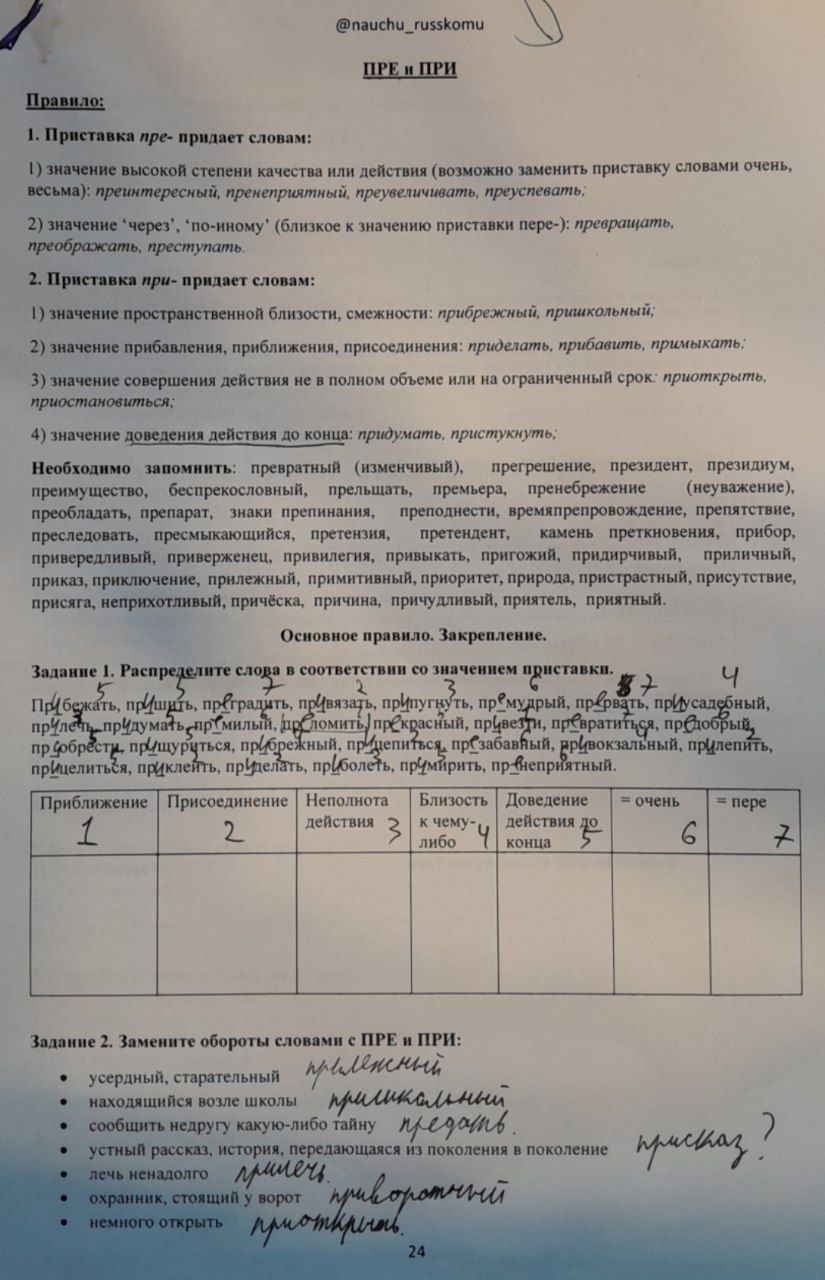 @nauchu_russkomu
ПРЕ и ПРИ
Правило:
1. Приставка пре- придает словам:
1) значение высокой степени качества или действия (возможно заменить приставку словами очень,
весьма): преинтересный, пренеприятный, преувеличивать, преуспевать;
2) значение ‘через’, ‘по-иному’ (близкое к значению приставки пере-): превращать,
преображать, преступать.
2. Приставка при- придает словам:
1) значение пространственной близости, смежности: прибрежный, пришкольный;
2) значение прибавления, приближения, присоединения: приделать, прибавить, примыкать;
3) значение совершения действия не в полном объеме или на ограниченный срок: приоткрыть,
приостановиться;
4) значение доведения действия до конца: придумать, пристукнуть;
Необходимо запомнить: превратный (изменчивый), прегрешение, президент, президиум,
преимущество, беспрекословный, прельщать, премьера, пренебрежение (неуважение),
преобладать, препарат, знаки препинания, преподнести, времяпрепровождение, препятствие,
преследовать, пресмыкающийся, претензия, претендент, камень преткновения, прибор,
привередливый, приверженец, привилегия, привыкать, пригожий, придирчивый, приличный,
приказ, приключение, прилежный, примитивный, приоритет, природа, пристрастный, присутствие,
присяга, неприхотливый, причёска, причина, причудливый, приятель, приятный.
Основное правило. Закрепление.
Задание 1. Распределите слова в соответствии со значением приставки.
5 5 7 2 3 6 7 4
Прибежать, пришить, преградить, привязать, припугнуть, премудрый, прервать, приусадебный,
прилечь, придумать, премилый, преломить, прекрасный, привезти, превратиться, предобрый,
приобрести, прищуриться, прибрежный, прицепиться, презабавный, привокзальный, прилепить,
прицелиться, приклеить, приделать, приболеть, примирить, пренеприятный.
Приближение 1 Присоединение 2 Неполнота действия 3 Близость к чему-либо 4 Доведение действия до конца 5 = очень 6 = пере 7
Задание 2. Замените обороты словами с ПРЕ и ПРИ:
• усердный, старательный прилежный
• находящийся возле школы пришкольный
• сообщить недругу какую-либо тайну предать.
• устный рассказ, история, передающаяся из поколения в поколение присказ?
• лечь ненадолго прилечь.
• охранник, стоящий у ворот приворотный
• немного открыть приоткрыть.
24